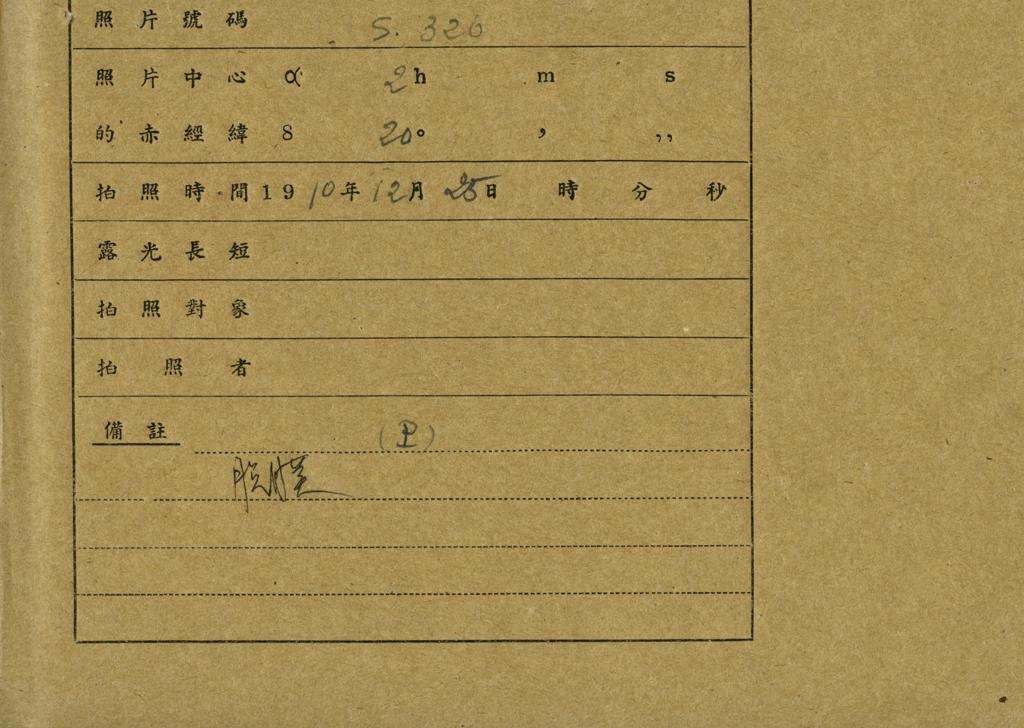 照片號碼 S. 326
照片中心 α 2h m s
的赤經緯 δ 20° ’ ’’
拍照時間 1910年12月25日 時 分 秒
露光長短
拍照對象
拍照者
備註 (P)
脫膜